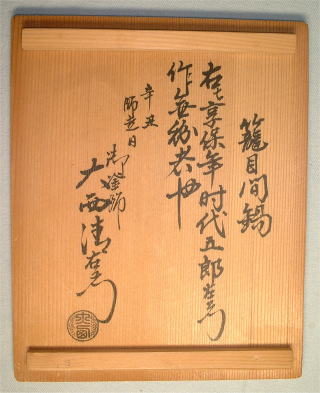 籠目間鍋
右者享保年時代五郎左衛門
作無紛者也
辛丑
師走日
御釜師
大西清右衛門